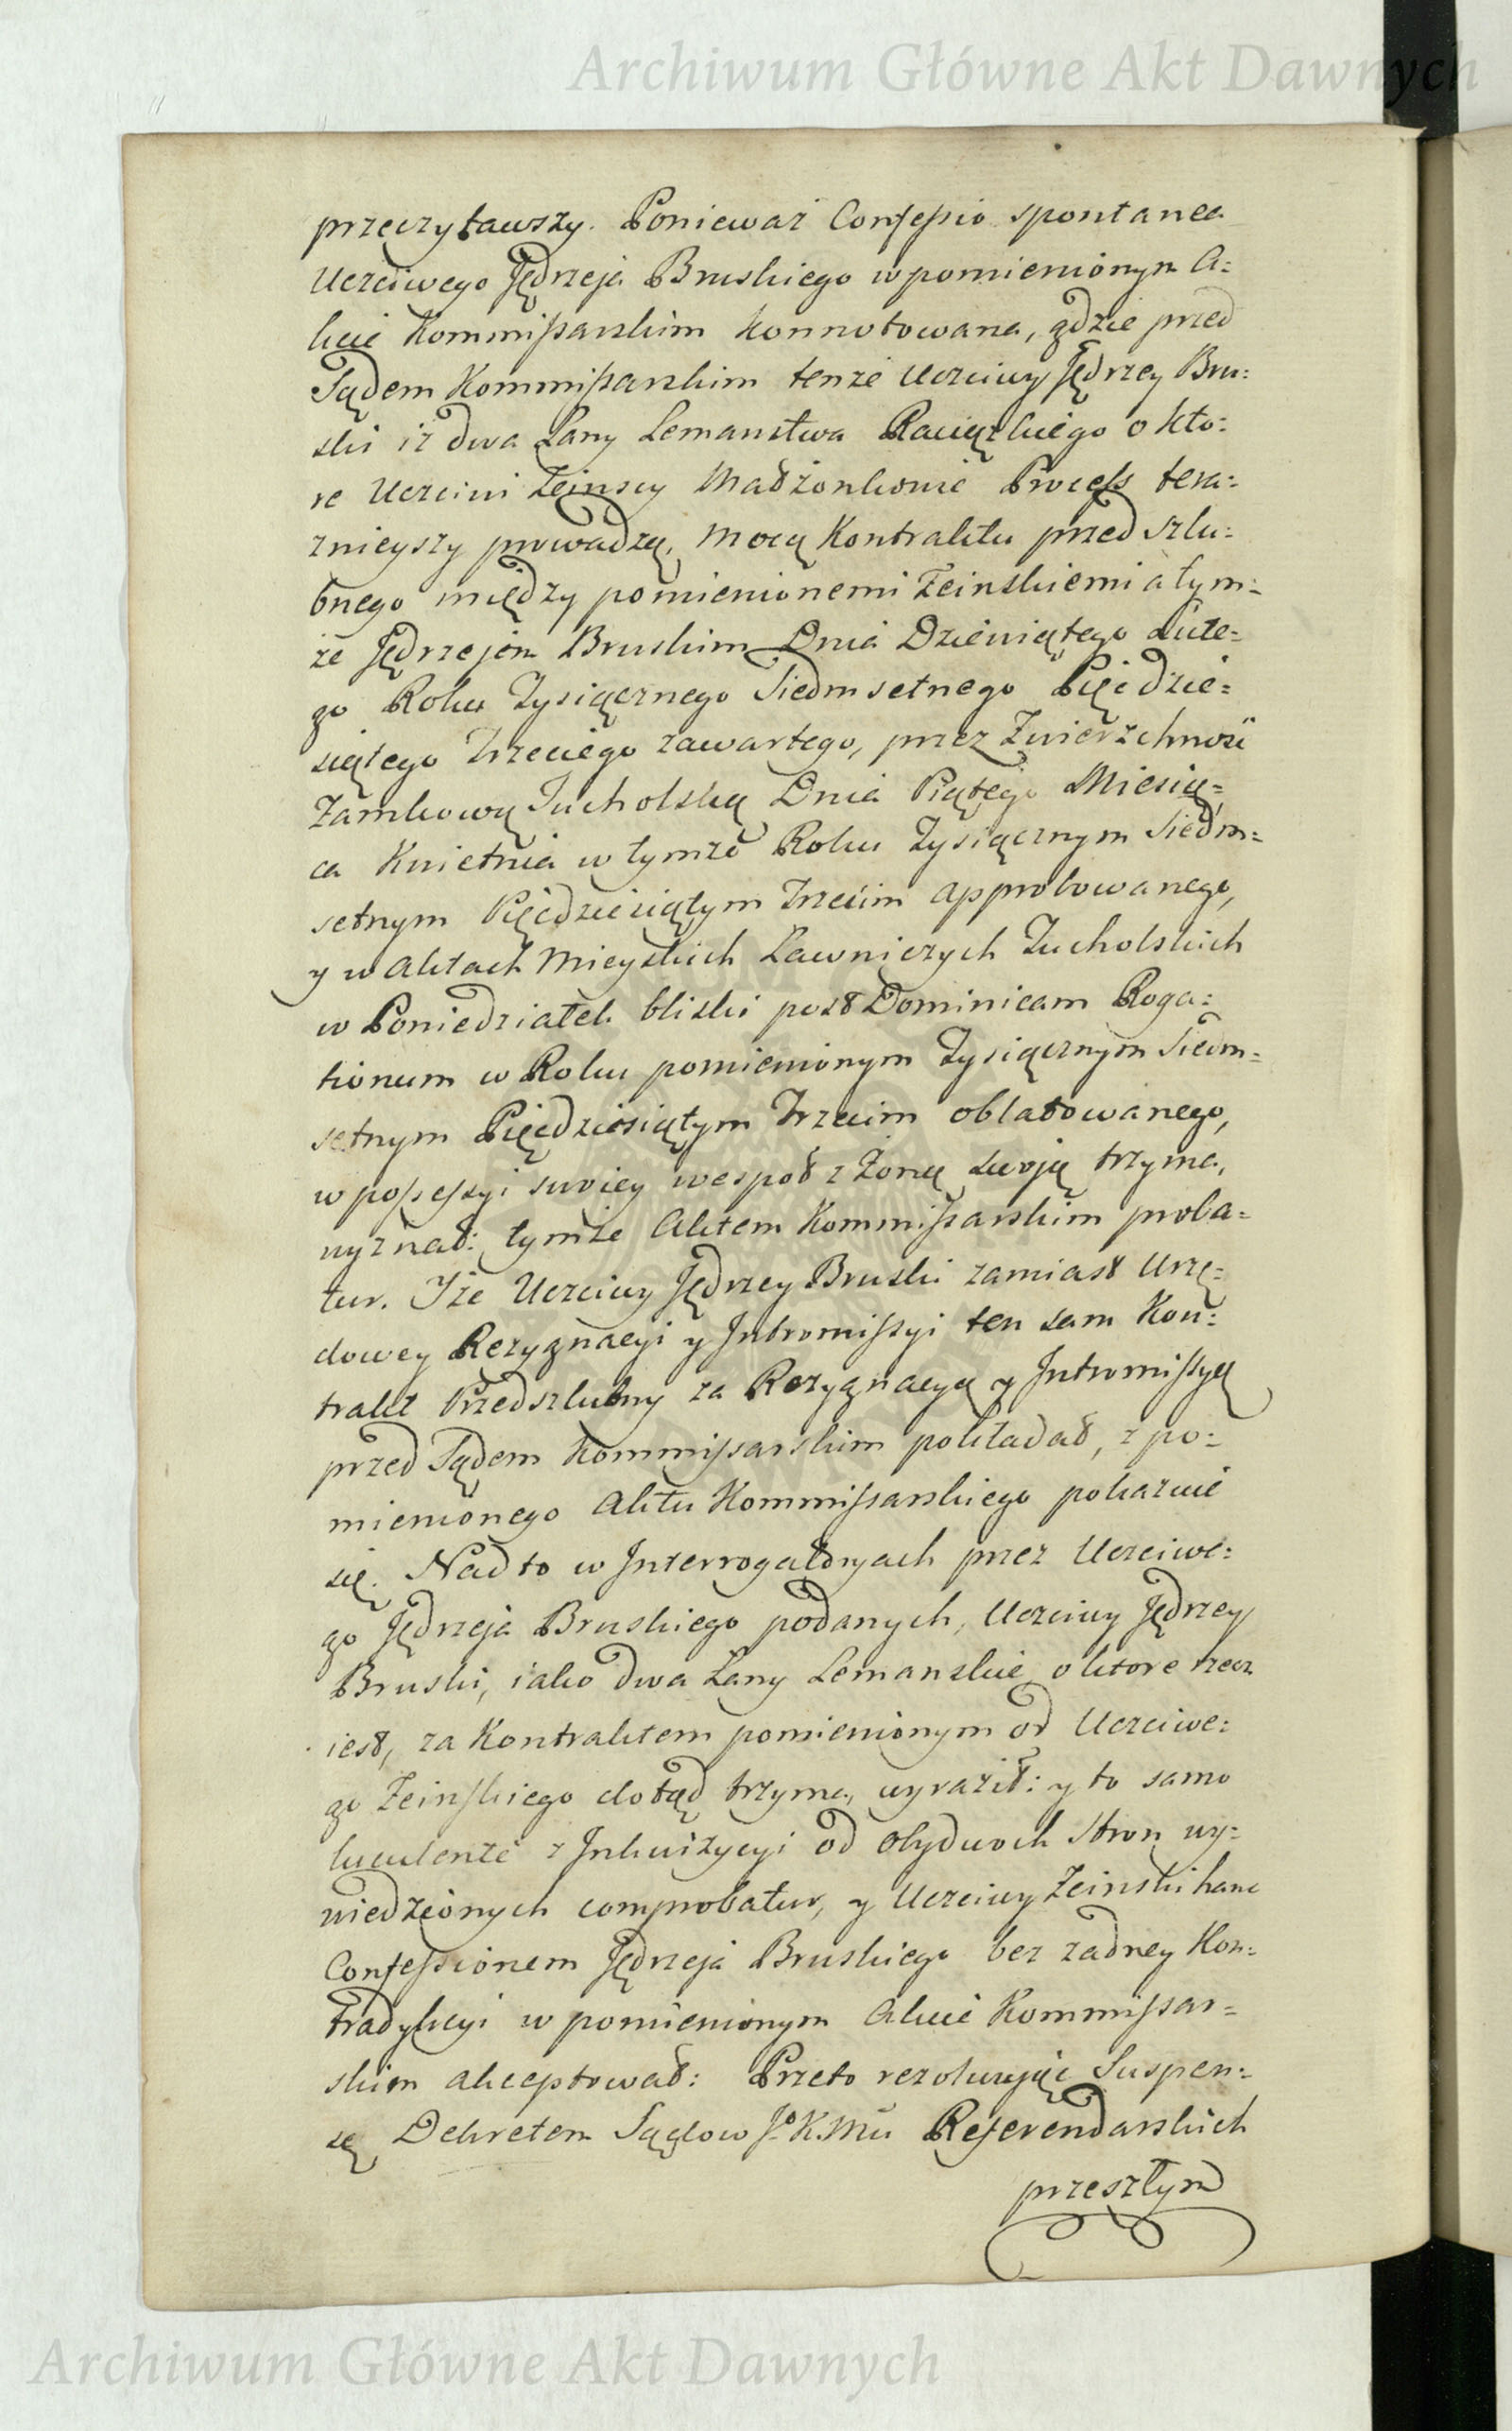 Archiwum Główne Akt Dawnych
przeczytawszy. Ponieważ Confessio spontanea
Uczciwego Jędrzeja Bruskiego w pomienionym A=
kcie Kommissarskim konnotowana, gdzie przed
Sądem Kommissarskim tenże Uczciwy Jędrzey Bru=
ski iż dwa Łany Lemanstwa Raciązkiego o kto=
re Uczciwi Zeinscy Małżonkowie Process tera=
znieyszy prowadzą, mocą Kontraktu przed szlu=
bnego między pomienionemi Zeinskiemi a tym=
że Jędrzejem Bruskim Dnia Dziewiątego Lute=
go Roku Tysiącznego Siedmsetnego Pięćdzie=
siątego Trzeciego zawartego, przez Zwierzchność
Zamkową Tucholską Dnia Piątego Miesią=
ca Kwietnia w tymże Roku Tysiącznym Siedm=
setnym Pięćdziesiątym Trzecim approbowanego,
y w Aktach Mieyskich Ławniczych Tucholskich
w Poniedziałek bliski post Dominicam Roga=
tionum w Roku pomienionym Tysiącznym Siedm=
setnym Pięćdziesiątym Trzecim oblatowanego,
w possessyi swoiey wespoł z Żoną swoją trzyma,
wyznał: tymże Aktem Kommissarskim proba=
tur. Iże Uczciwy Jędrzey Bruski zamiast Urzę=
dowey Rezygnacyi y Intromissyi ten sam Kon=
trakt Przedszlubny za Rezygnacyą y Intromissyą
przed Sądem Kommissarskim pokładał, z po=
mienionego Aktu Kommissarskiego pokazuie
się. Nad to w Interrogatoryach przez Uczciwe=
go Jędrzeja Bruskiego podanych, Uczciwy Jędrzey
Bruski, iako dwa Łany Lemanskie o ktore rzecz
iest, za Kontraktem pomienionym od Uczciwe=
go Zeinskiego dotąd trzyma, wyraził: y to samo
luculenté z Inkwizycyi od obydwoch Stron wy=
wiedzionych comprobatur, y Uczciwy Zeinski hanc
Confessionem Jędrzeja Bruskiego bez żadney Kon=
tradykcyi w pomienionym Akcie Kommissar=
skim akceptował: Przeto rezolwując Suspen=
sę Dekretem Sądow Jo K Mci Referendarskich
przeszłym
Archiwum Główne Akt Dawnych